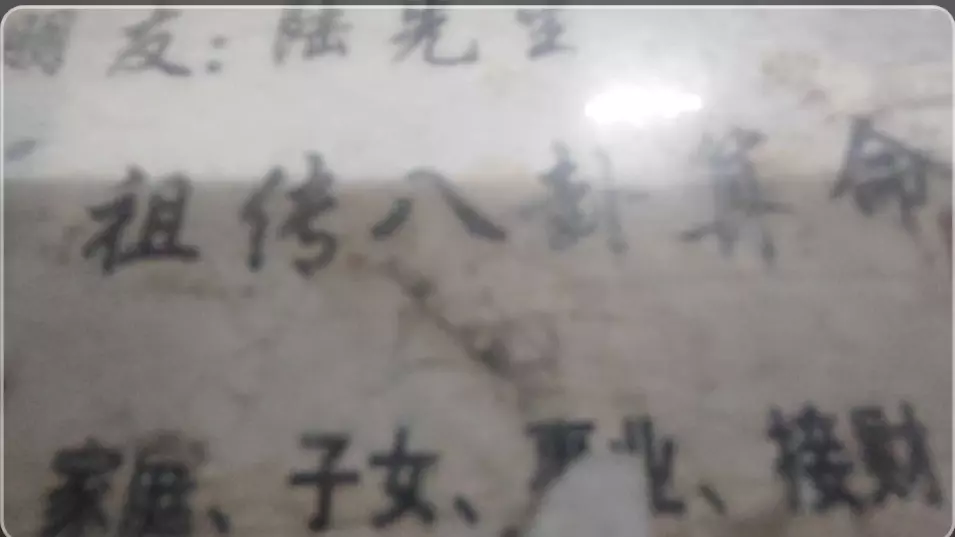 朋友：陆先生
祖传八卦算命
家庭、子女、事业、接财